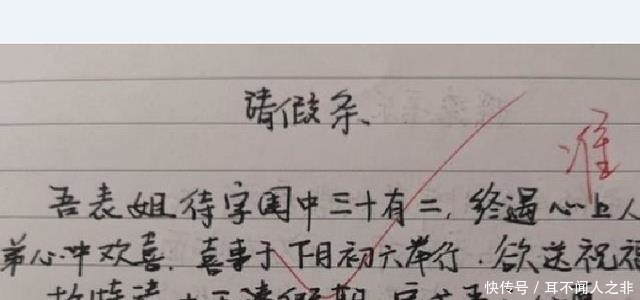 请假条
准
吾表姐待字闺中三十有二，终遇心上人
弟心中欢喜，喜事于下月初六举行，欲送祝福
故特请
请假期
快传号 / 耳不闻人之非